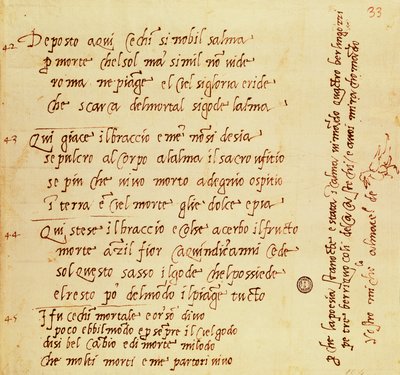 33
42 Deposto a qui cechin si nobil salma
p morte chel sol ma simil nō vide
roma ne piāge el ciel si gloria e ride
che scarca del mortal si gode lalma
43 Qui giace il braccio e me nō si desia
sepulcro al corpo a lalma il sacro ufitio
se piu che vivo morto a degnio ospitio
ī terra e ī ciel morte glie dolce e pia
44 Qui stese il braccio e colse acerbo il fructo
morte āzil fior ca quindici anni cede
sol questo sasso il gode chel possiede
el resto po del mōdo il piāge tucto
45 I fu cechī mortale e or sō divo
poco ebbi il mōdo e p sēpre il ciel godo
di si bel cābio e di morte mi lodo
che molti morti e me partori vivo
p che la poesia stanocte e stata ī calma vi mādo quatro berlingozzi
pe tre berriquocoli del
Vostro
al macel de